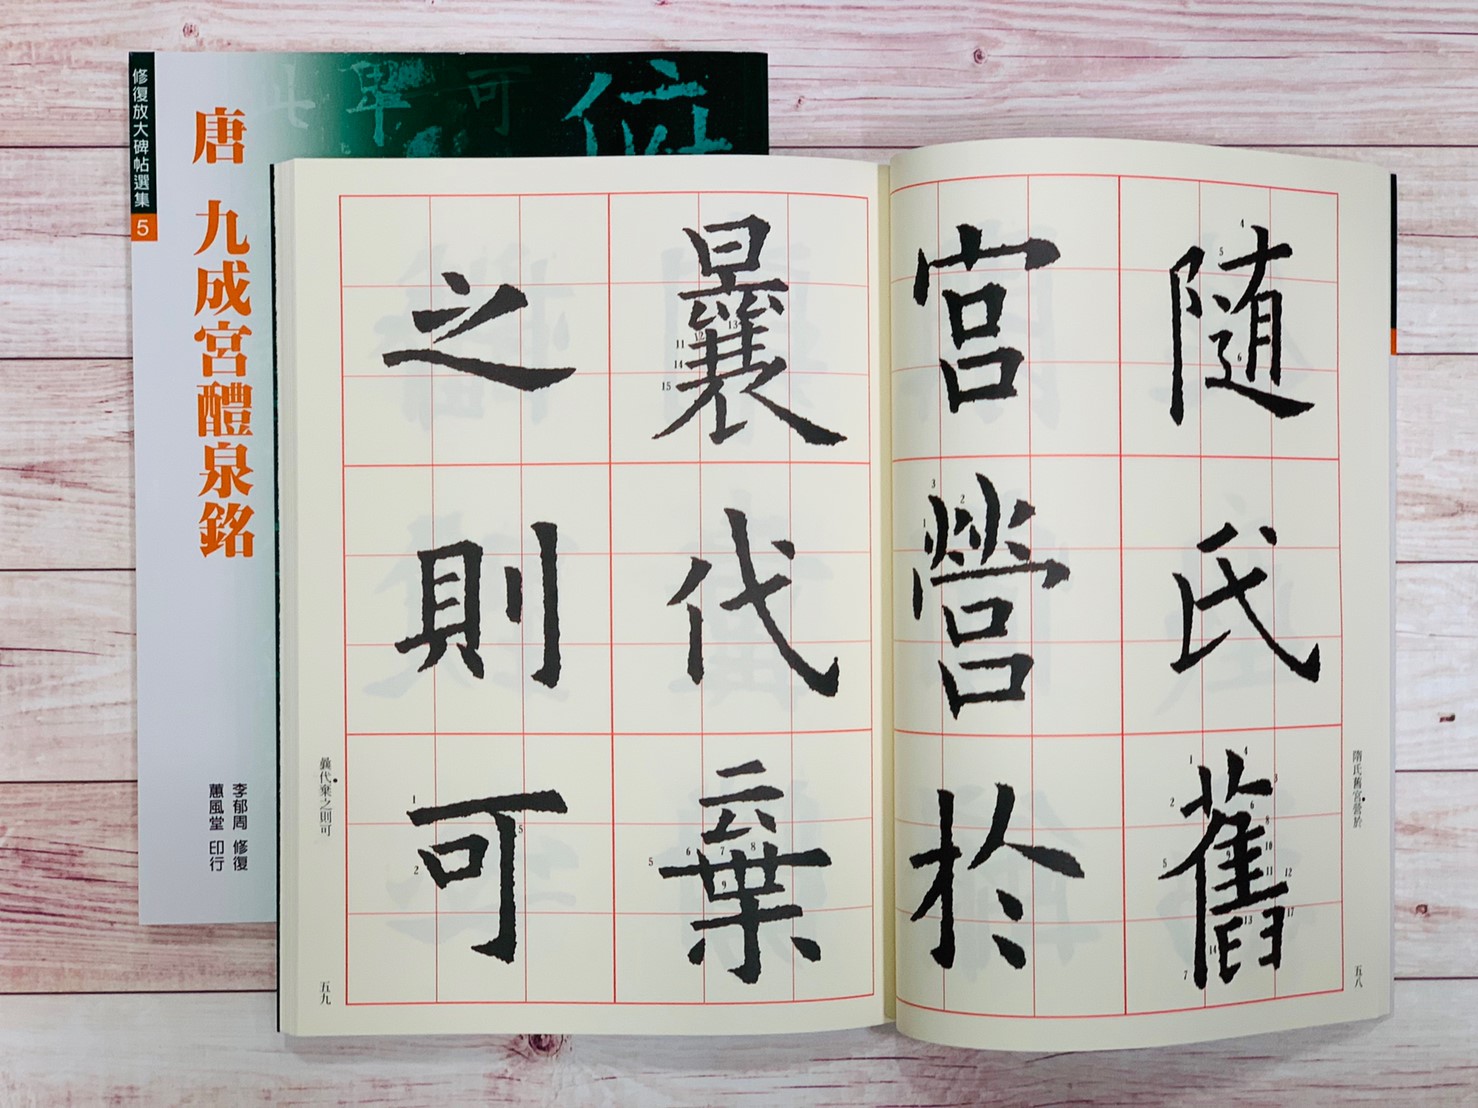 修復放大碑帖選集 5
唐 九成宮醴泉銘
李郁周 修復
蕙風堂 印行
可
随氏舊
宮營於
隋氏舊宮營於
五八
曩代棄
之則可
曩代棄之則可
五九